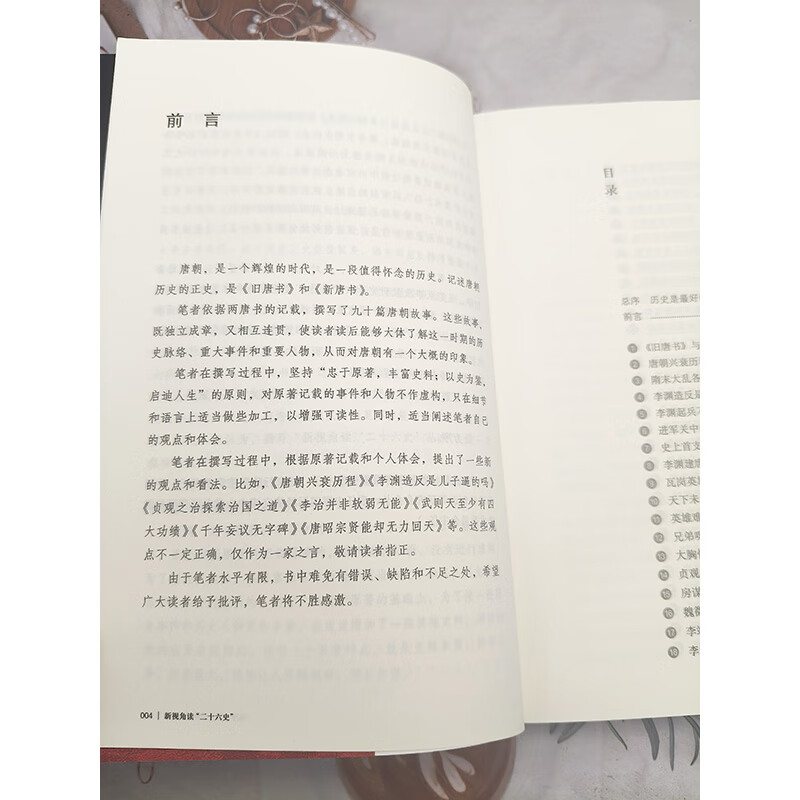 前 言
唐朝，是一个辉煌的时代，是一段值得怀念的历史。记述唐朝
历史的正史，是《旧唐书》和《新唐书》。
笔者依据两唐书的记载，撰写了九十篇唐朝故事。这些故事，
既独立成章，又相互连贯，使读者读后能够大体了解这一时期的历
史脉络、重大事件和重要人物，从而对唐朝有一个大概的印象。
笔者在撰写过程中，坚持“忠于原著，丰富史料；以史为鉴，
启迪人生”的原则，对原著记载的事件和人物不作虚构，只在细节
和语言上适当做些加工，以增强可读性。同时，适当阐述笔者自己
的观点和体会。
笔者在撰写过程中，根据原著记载和个人体会，提出了一些新
的观点和看法。比如，《唐朝兴衰历程》《李渊造反是儿子逼的吗》
《贞观之治探索治国之道》《李治并非软弱无能》《武则天至少有四
大功绩》《千年妄议无字碑》《唐昭宗贤能却无力回天》等。这些观
点不一定正确，仅作为一家之言，敬请读者指正。
由于笔者水平有限，书中难免有错误、缺陷和不足之处，希望
广大读者给予批评，笔者将不胜感激。
004 | 新视角读“二十六史”
目
录
总序 历史是最好
前言
1 《旧唐书》与
2 唐朝兴衰历
3 隋末大乱各
4 李渊造反是
5 李渊起兵
6 进军关中
7 史上首支
8 李渊建唐
9 瓦岗英
10 天下未
11 英雄难
12 兄弟
13 大胸
14 贞观
15 房谋
16 魏
17 李
18 李